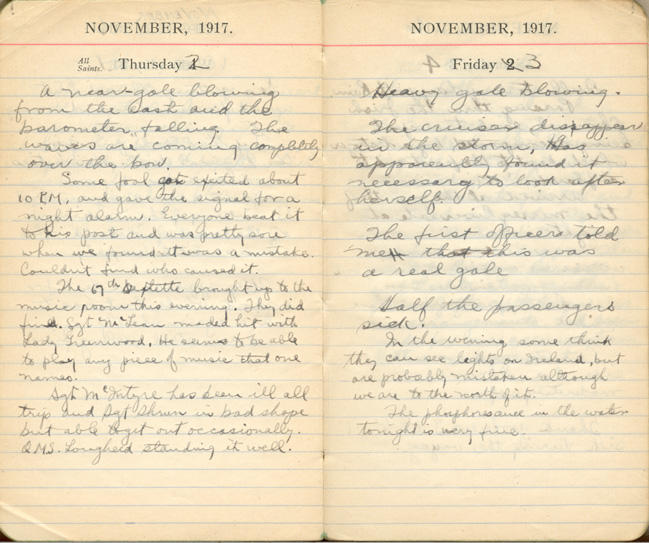 NOVEMBER, 1917.
All Saints. Thursday 2
A near gale blowing
from the east and the
barometer, falling. The
waves are coming completely
over the bow.
Some fool got exited about
10 P.M. and gave the signal for a
night alarm. Everyone beat it
to his post and was pretty sore
when we found it was a mistake.
Couldn't find who caused it.
The 67th Septette brought up to the
music room this evening. They did
fine. Sgt McLean maded hit with
Lady Greenwood. He seems to be able
to play any piece of music that one
names.
Sgt McIntyre has been ill all
trip and Sgt in bad shape
but able to get out occasionally.
Q.M.S. Lougheed standing it well.
NOVEMBER, 1917.
Friday 3
Heavy gale blowing.
The cruiser disappear
in the storm, Has
apparently found it
necessary to look after
herself.
The first officer told
me that this was
a real gale
Half the passengers
sick.
In the evening some think
they can see lights on Ireland, but
are probably mistaken although
we are to the north of it.
The phosphresance in the water
tonight is very fine.